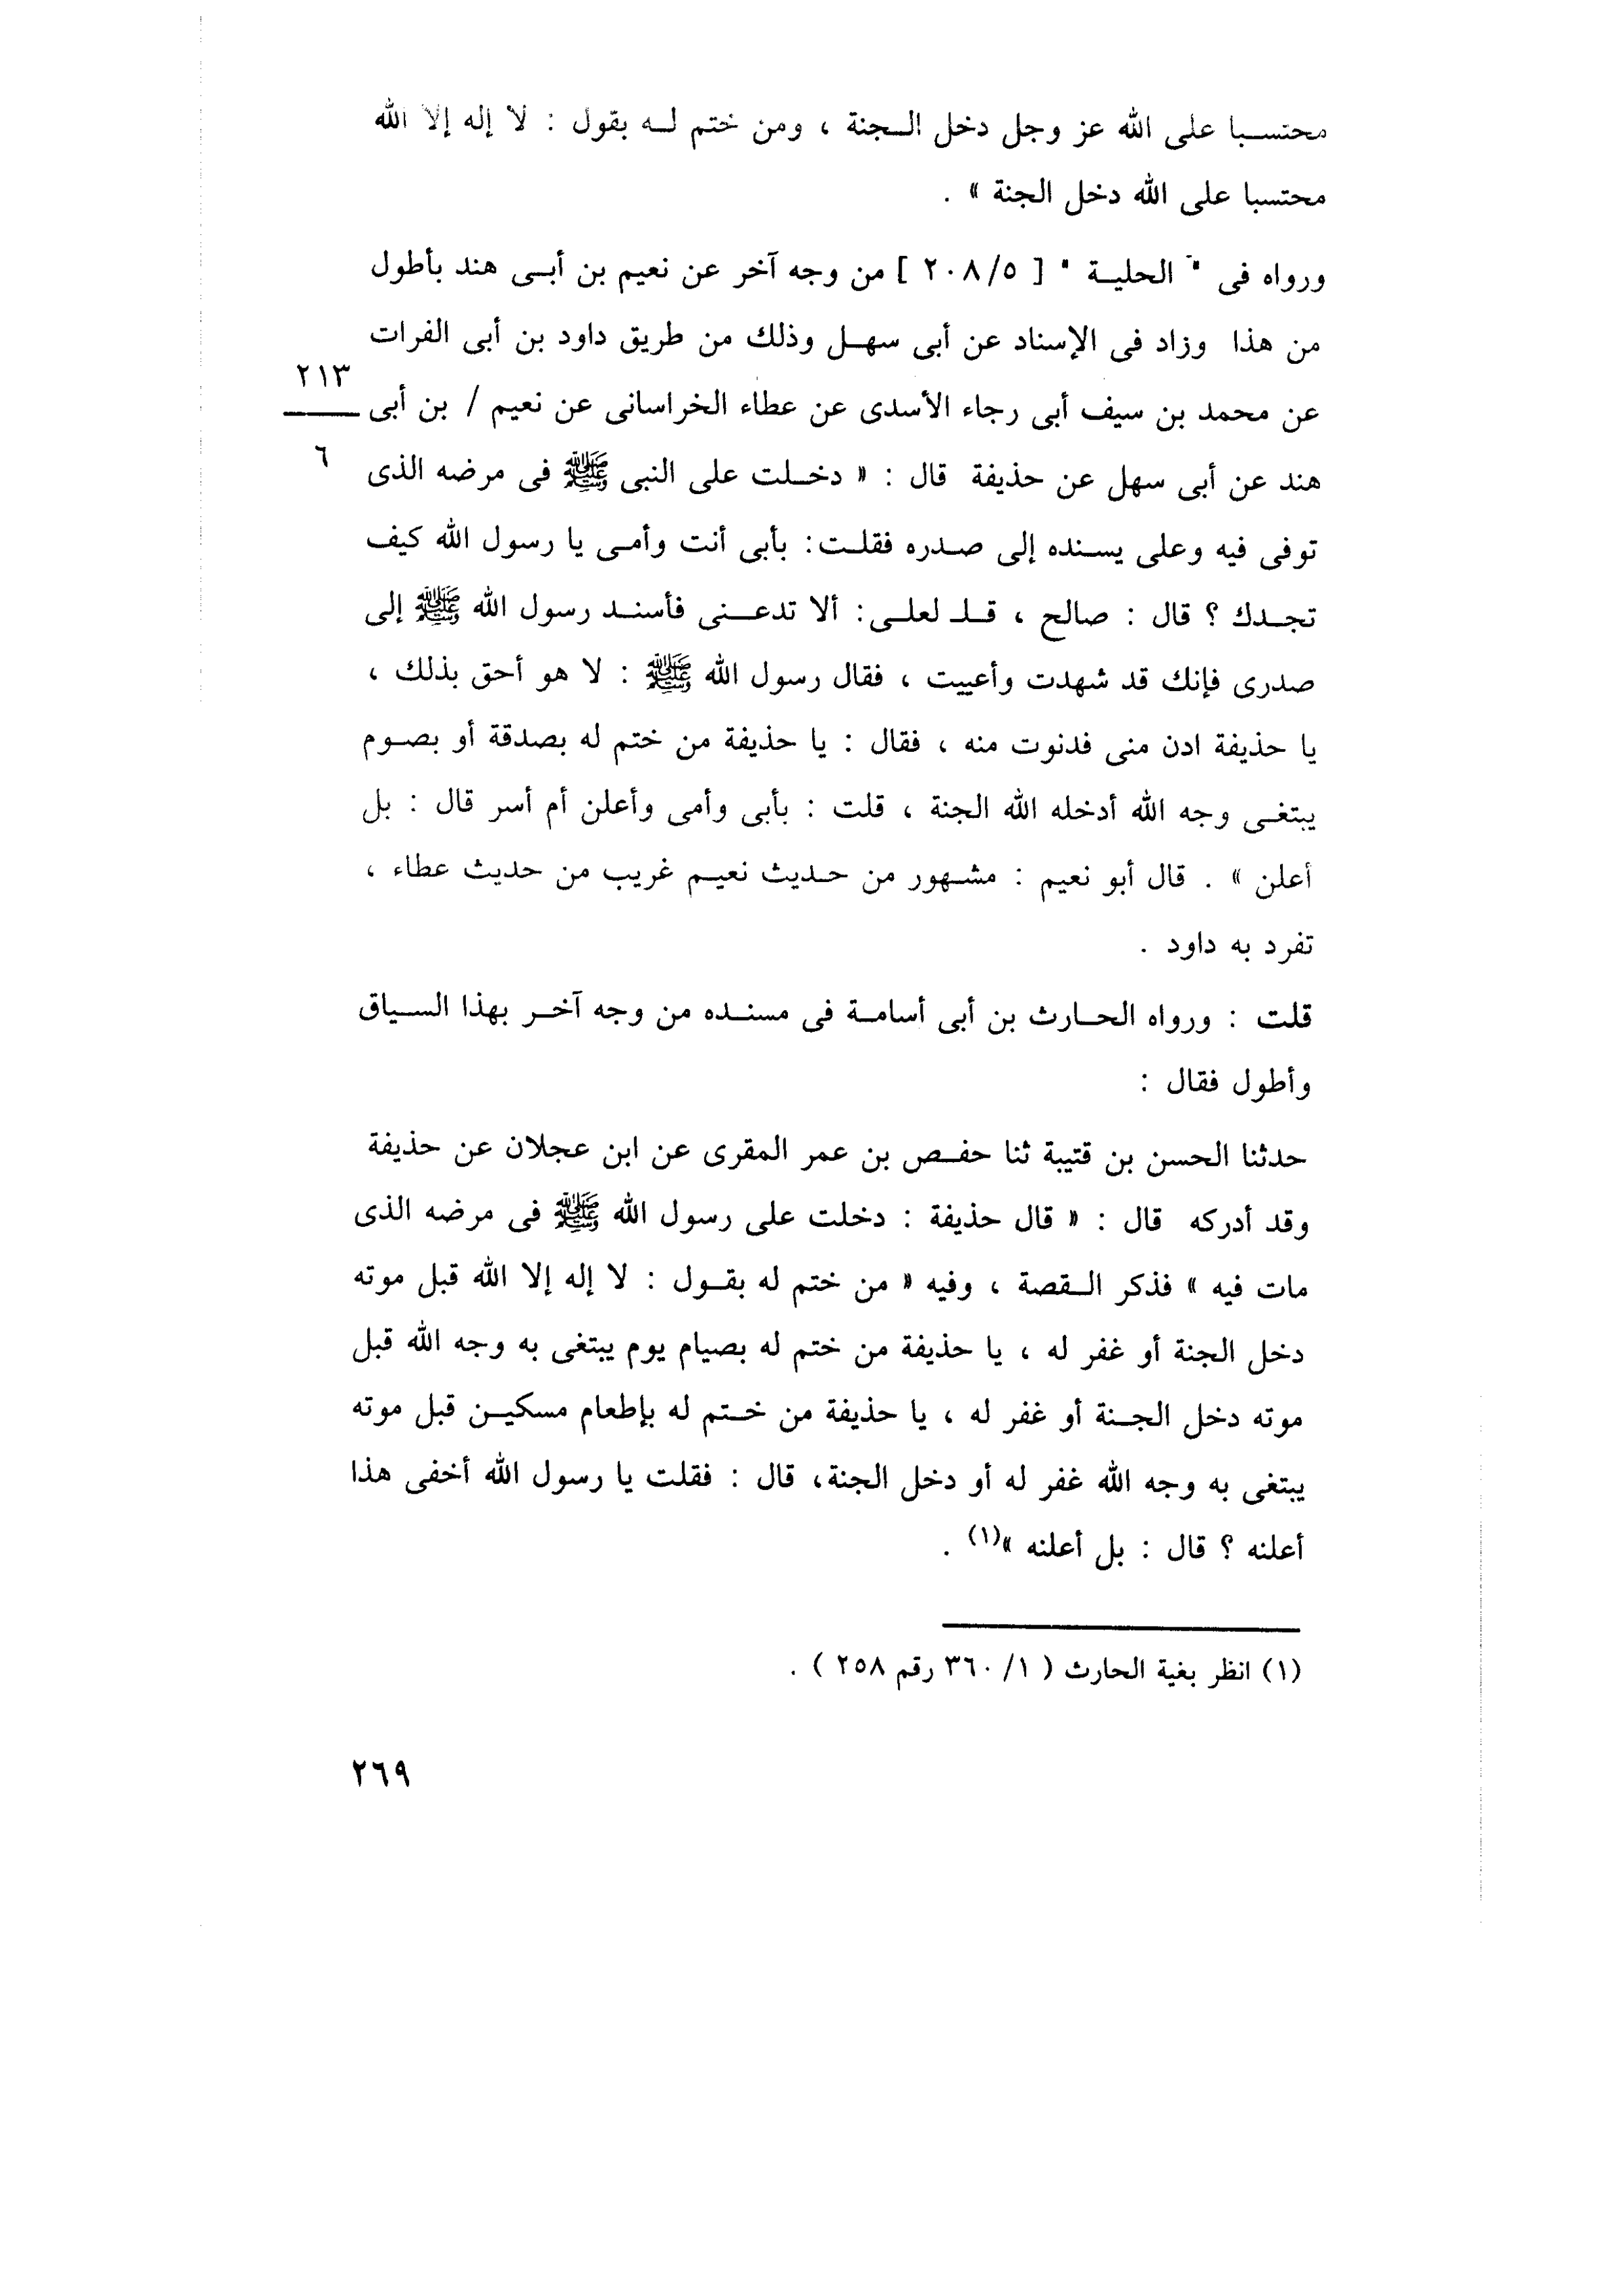 محتسبا على الله عز وجل دخل الجنة ، ومن ختم له بقول : لا إله إلا الله
محتسبا على الله دخل الجنة » .
ورواه فى " الحلية " [ ٢٠٨/٥ ] من وجه آخر عن نعيم بن أبى هند بأطول
من هذا وزاد فى الإسناد عن أبى سهل وذلك من طريق داود بن أبى الفرات
عن محمد بن سيف أبى رجاء الأسدى عن عطاء الخراسانى عن نعيم / بن أبى
٢١٣
٦
هند عن أبى سهل عن حذيفة قال : « دخلت على النبى ﷺ فى مرضه الذى
توفى فيه وعلى يسنده إلى صدره فقلت : بأبى أنت وأمى يا رسول الله كيف
تجدك ؟ قال : صالح ، قلـ لعلى : ألا تدعنى فأسند رسول الله ﷺ إلى
صدرى فإنك قد شهدت وأعييت ، فقال رسول الله ﷺ : لا هو أحق بذلك ،
يا حذيفة ادن منى فدنوت منه ، فقال : يا حذيفة من ختم له بصدقة أو بصوم
يبتغى وجه الله أدخله الله الجنة ، قلت : بأبى وأمى وأعلن أم أسر قال : بل
أعلن » . قال أبو نعيم : مشهور من حديث نعيم غريب من حديث عطاء ،
تفرد به داود .
قلت : ورواه الحارث بن أبى أسامة فى مسنده من وجه آخر بهذا السياق
وأطول فقال :
حدثنا الحسن بن قتيبة ثنا حفص بن عمر المقرى عن ابن عجلان عن حذيفة
وقد أدركه قال : « قال حذيفة : دخلت على رسول الله ﷺ فى مرضه الذى
مات فيه » فذكر القصة ، وفيه « من ختم له بقول : لا إله إلا الله قبل موته
دخل الجنة أو غفر له ، يا حذيفة من ختم له بصيام يوم يبتغى به وجه الله قبل
موته دخل الجنة أو غفر له ، يا حذيفة من ختم له بإطعام مسكين قبل موته
يبتغى به وجه الله غفر له أو دخل الجنة، قال : فقلت يا رسول الله أخفى هذا
أعلنه ؟ قال : بل أعلنه »(١) .
(١) انظر بغية الحارث ( ٣٦٠/١ رقم ٢٥٨ ) .
٢٦٩